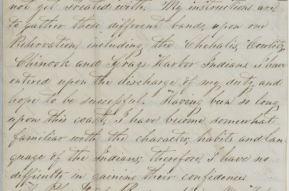 not yet treated with. My instructions are
to gather these different bands upon one
Reservation, including the Chehalis, Cowlitz
Chinook and Grays Harbor Indians. I have
entered upon the discharge of my duty, and
hope to be successful. Having been so long
upon this coast, I have become somewhat
familiar with the character, habits and lan
guage of the Indians; therefore, I have no
difficulty in gaining their confidences